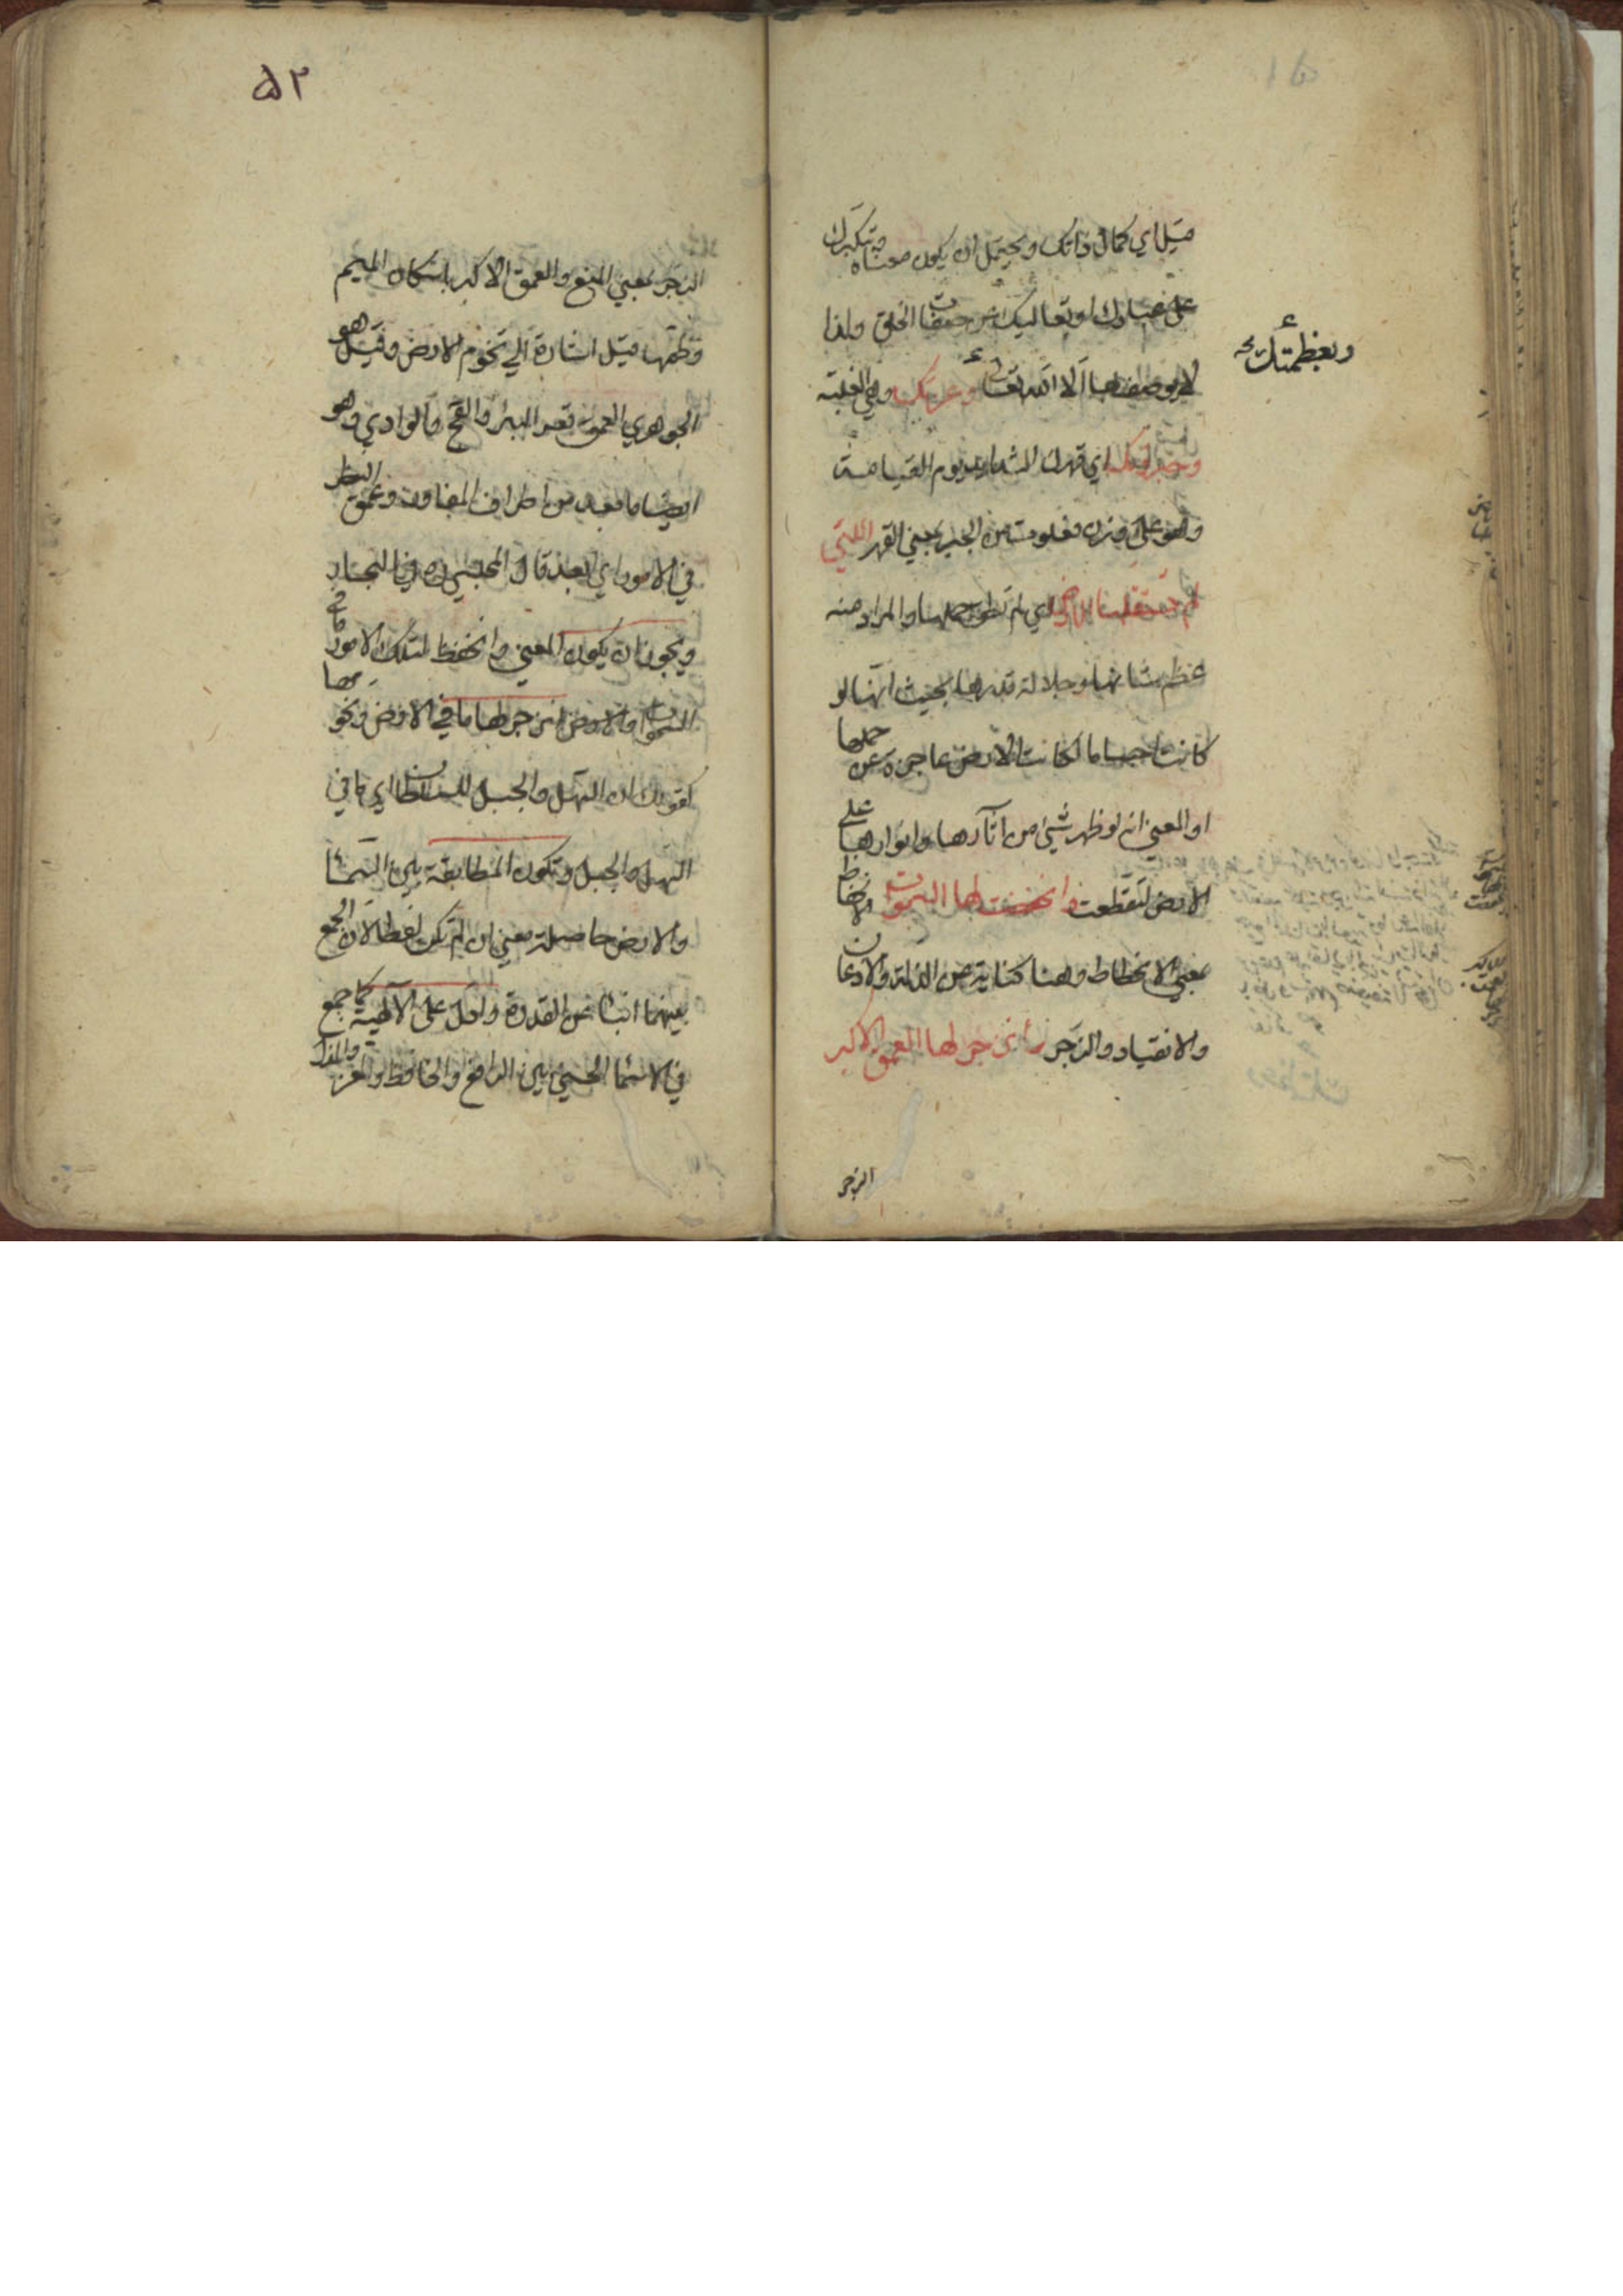 قيل اي كمال ذاتك ويحتمل ان يكون معناه تكبرك
على عبادك او تعاليك عن صفات الخلق ولذا
لا يوصف بها الا الله تعالى وعزتك وهي الغلبة
وجبروتك اي قهرك الشديد يوم القيامة
وهو على وزن فعلوت من الجبر بمعنى القهر اللتي
لم تستقلها الارض اي لم تطق حملها والمراد منه
عظم شانها وجلالة قدرها بحيث انها لو
كانت اجساما لكانت الارض عاجزة عن حملها
او المعنى انه لو ظهر شيئ من آثارها وانوارها على
الارض لتقطعت وانخفضت لها السموات الانخفاظ
بمعنى الانحطاط وهنا كناية عن الذلة والاذعان
والانقياد والزجر وانزجر لها العمق الاكبر
الزجر
وبعظمتك
۵۲
الزجر بمعنى المنع والعمق الاكبر باسكان الميم
وضمها قيل اشارة الى تخوم الارض وقيل هو
الجوهري العمق قعر البئر والفج والوادي وهو
ايضا ما بعد من اطراف المفاوز وعمق النظر
في الامور اي ابعد قال المجلسي ره في البحار
ويجوز ان يكون المعنى وانخفظ لتلك الامور ما في
السموات والارض وانزجر لها ما في الارض ونحوها
كقولك ان السهل والجبل للسلطان اي ما في
السهل والجبل وتكون المطابقة بين السماء
والارض حاصلة معنى ان لم تكن لفظا لان الجمع
بينهما انبأ عن القدرة وادل على الآلهية كما جمع
في الاسماء الحسنى بين الرافع والخافظ والمعز والمذل